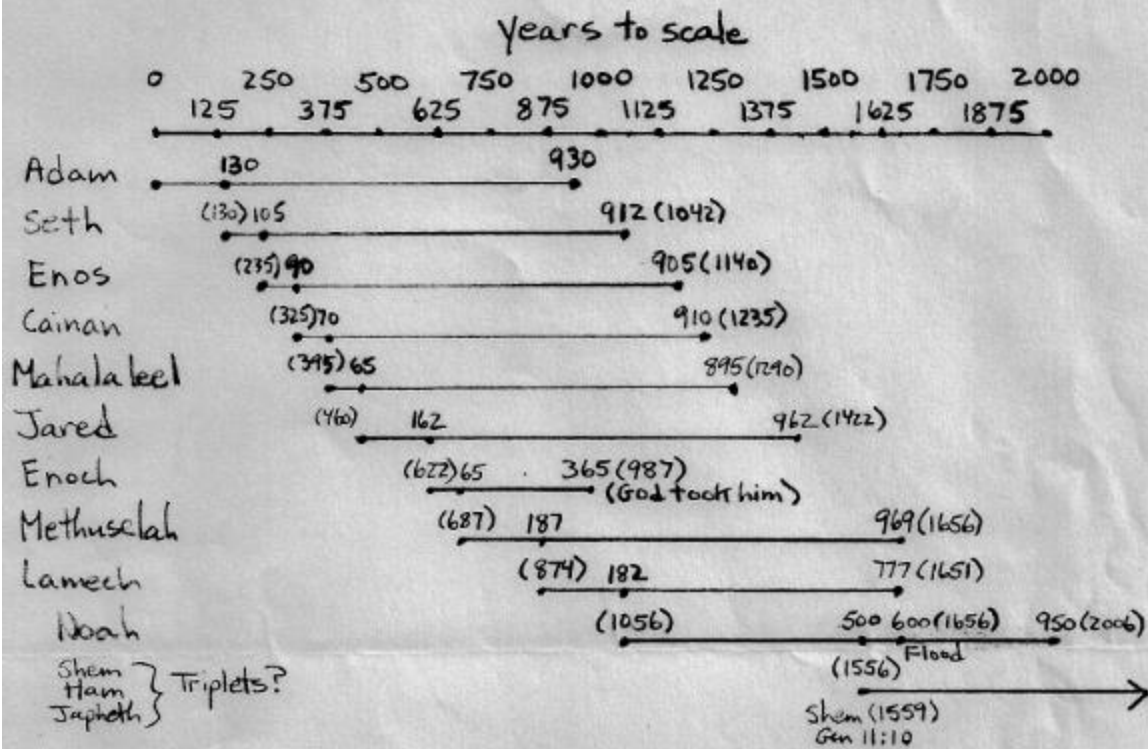 years to scale
0 250 500 750 1000 1250 1500 1750 2000
125 375 625 875 1125 1375 1625 1875
Adam 130 930
Seth (130) 105 912 (1042)
Enos (235) 90 905 (1140)
Cainan (325) 70 910 (1235)
Mahalaleel (395) 65 895 (1290)
Jared (460) 162 962 (1422)
Enoch (622) 65 365 (987)
(God took him)
Methuselah (687) 187 969 (1656)
Lamech (874) 182 777 (1651)
Noah (1056) 500 600 (1656) 950 (2006)
Flood
(1556)
Shem
Ham
Japheth
Triplets?
Shem (1559)
Gen 11:10